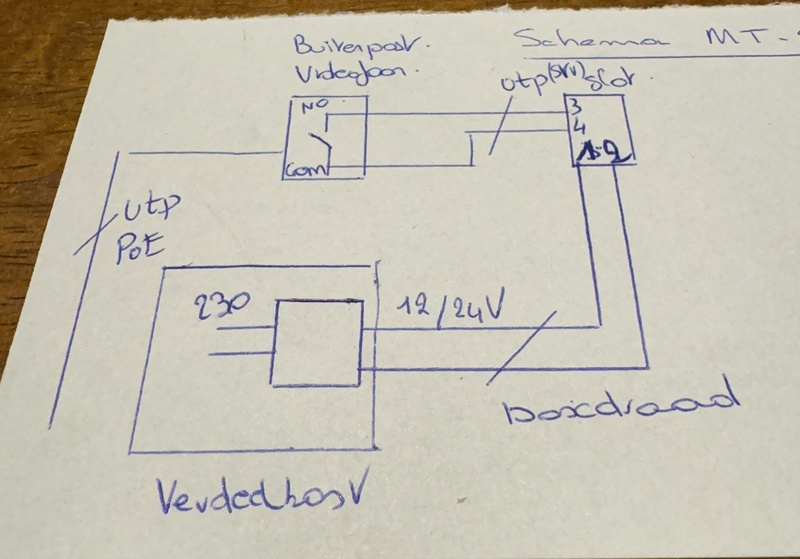 Buitenpost.
Videofoon.
Schema MT-
utp(SFTV) slot.
NO
COM
3
4
1-2
utp
PoE
230
12/24V
boxdraad
VerdeelkastV